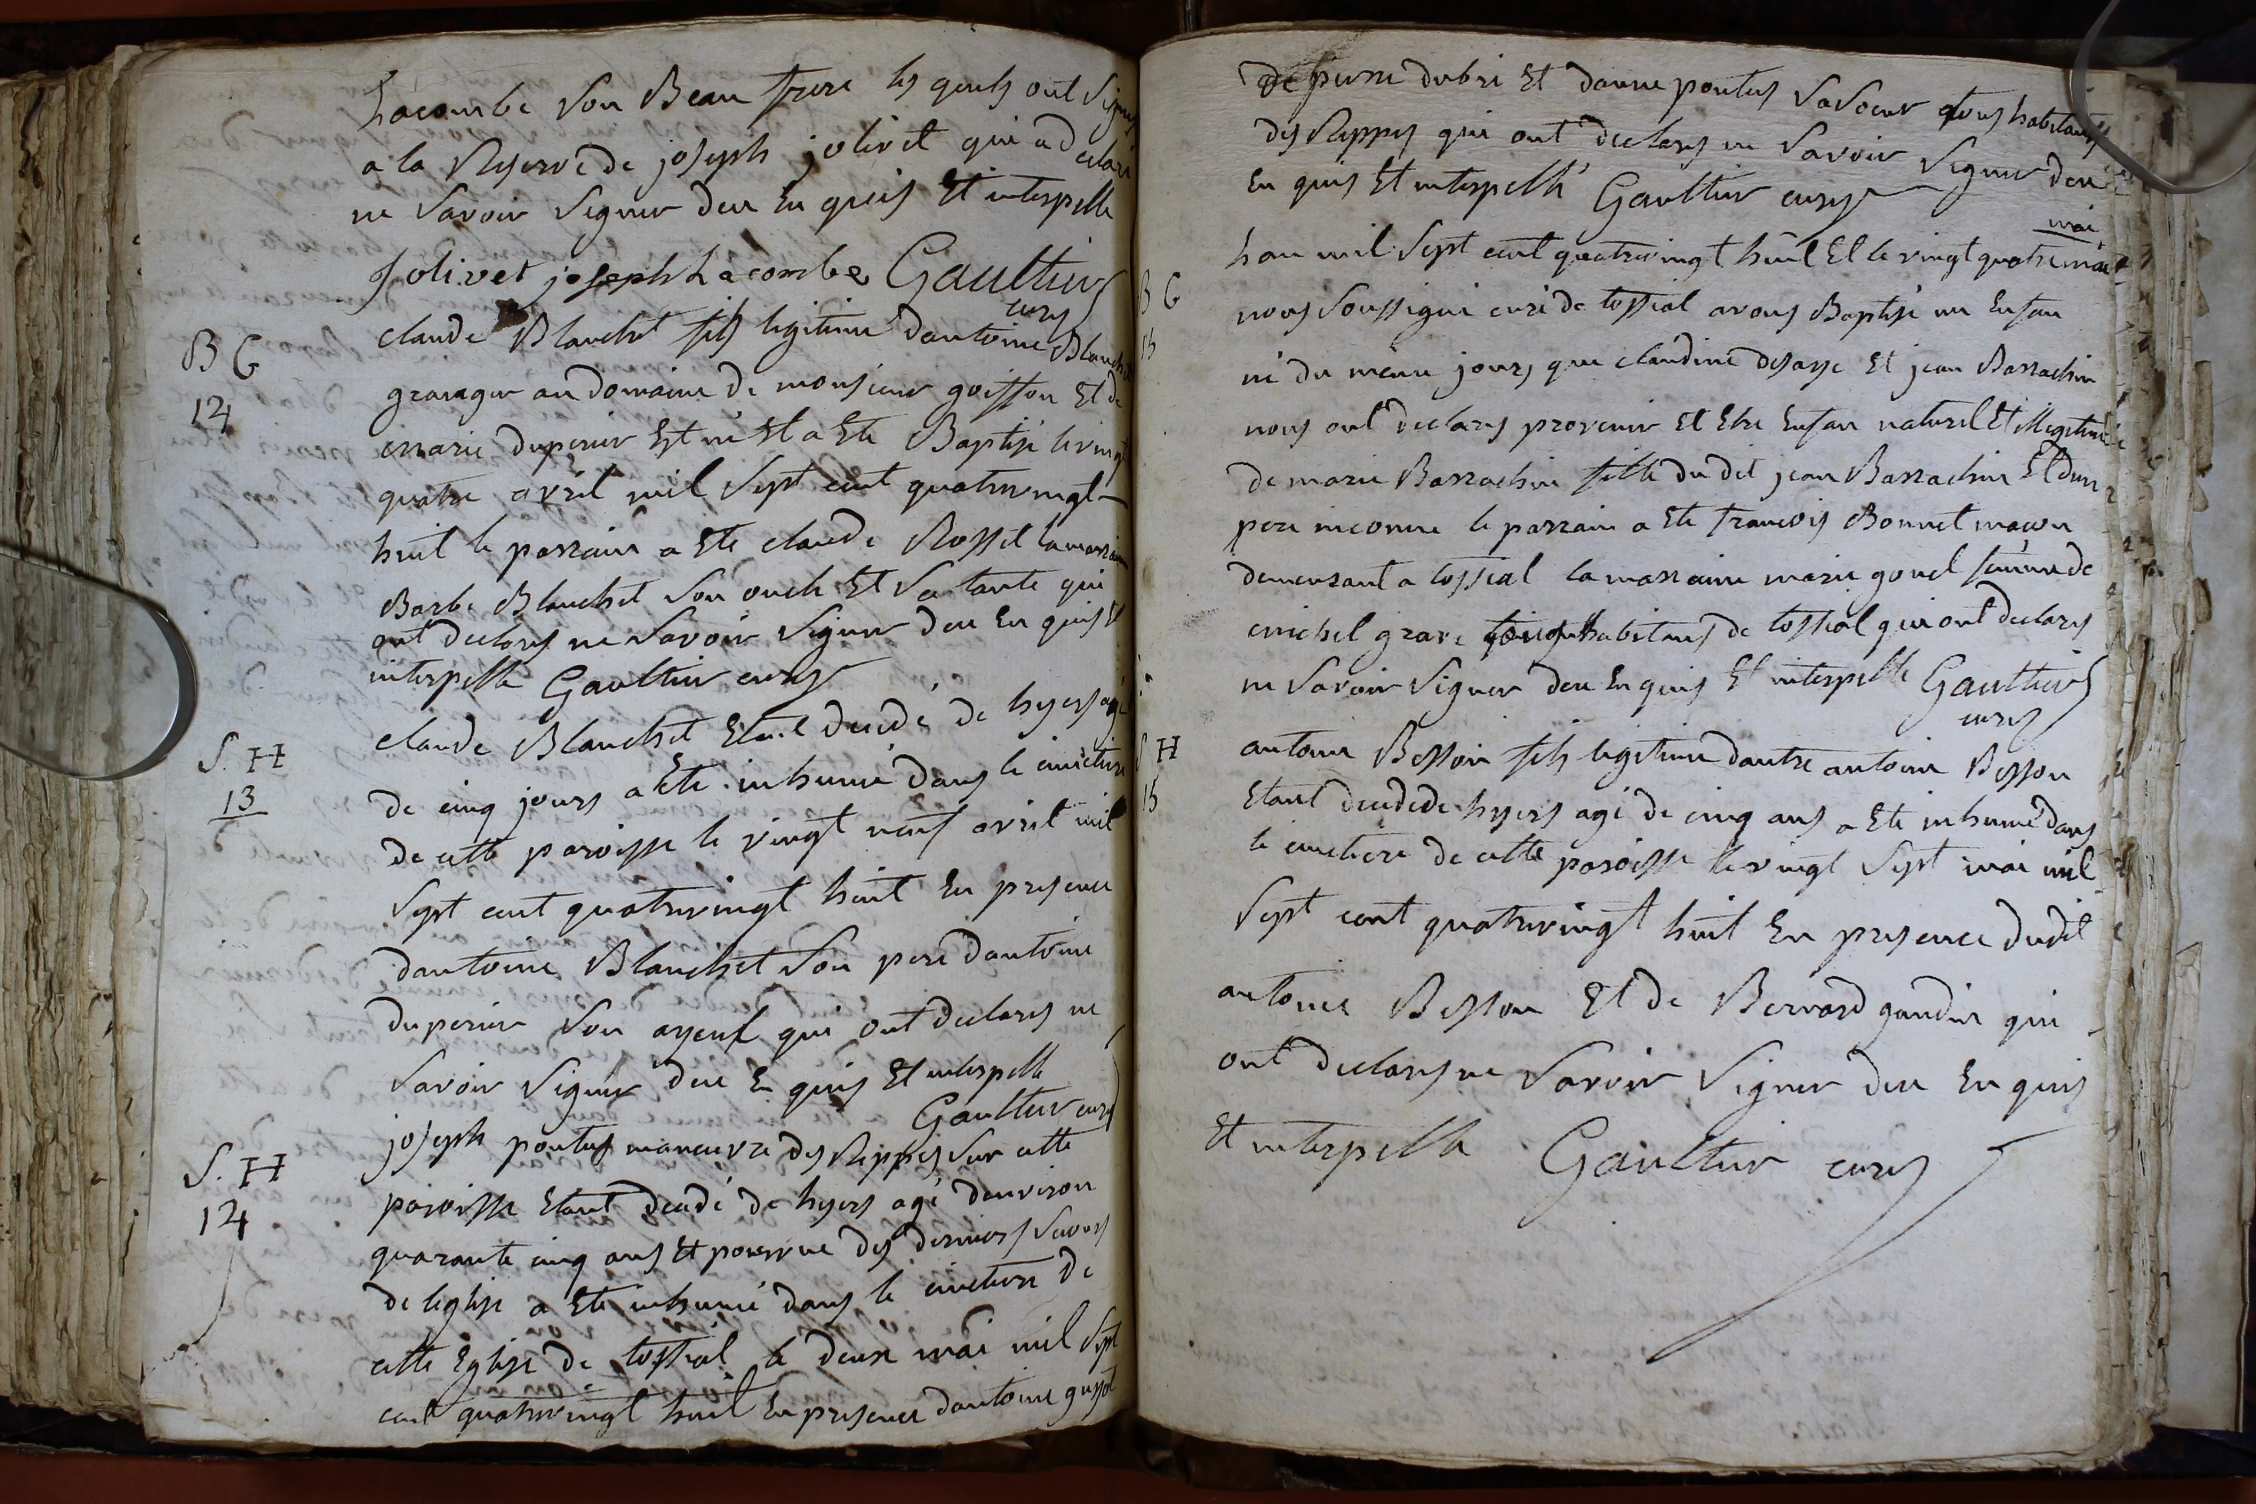 Lacombe son Beau frere les quels ont signes
a la Reserve de joseph jolivet qui a declaré
ne savoir signer deu Enquis Et interpellé
Jolivet joseph Lacombe Gaultier
curé
B G
12
claude Blanchet fils legitime dantoine Blanchet
granager au domaine de monsieur goisson Et de
marie duperier Est né Et a Eté Baptisé le vingt
quatre avril mil sept cent quatrevingt
huit le parrain a Eté claude Rosset la marraine
Barbe Blanchet son oncle Et sa tante qui
ont declarés ne savoir signer deu Enquis Et
interpellé Gaultier curé
S. H
13
claude Blanchet Etant decedé de hyers agé
de cinq jours a Eté inhumé dans le cimetiere
de cette paroisse le vingt neuf avril mil
sept cent quatrevingt huit En presence
dantoine Blanchet son pere dantoine
duperier son ayeul qui ont declarés ne
savoir signer deu Enquis Et interpellé
Gaultier curé
S. H
14
joseph pontus manœuvre des Rippes sur cette
paroisse Etant decedé de hyers agé denviron
quarante cinq ans Et pourvue des derniers secours
de leglise a Eté inhumé dans le cimetiere de
cette Eglise de tossiat le deux mai mil sept
cent quatrevingt huit En presence dantoine guyot
de pierre dubri Et danne pontus sa soeur tous habitants
des Rippes qui ont declarés ne savoir signer deu
Enquis Et interpellé Gaultier curé
B G
15
mai
Lan mil sept cent quatrevingt huit Et le vingt quatre mai
nous soussigné curé de tossiat avons Baptisé un Enfan
né du meme jours que claudine desaye Et jean Barrachin
nous ont declarés provenir Et Etre Enfan naturel Et illegitime
de marie Barrachin fille du dit jean Barrachin Et dun
pere inconnu le parrain a Eté francois Bonnet maçon
demeurant a tossiat la marraine marie gonel femme de
michel grave habitans de tossiat qui ont declarés
ne savoir signer deu Enquis Et interpellé Gaultier
curé
S H
15
antoine Besson fils legitime dautre antoine Besson
Etant decedé de hyers agé de cinq ans a Eté inhumé dans
le cimetiere de cette paroisse le vingt sept mai mil
sept cent quatrevingt huit En presence dudit
antoine Besson Et de Bernard gaudin qui
ont declarés ne savoir signer deu Enquis
Et interpellé Gaultier curé